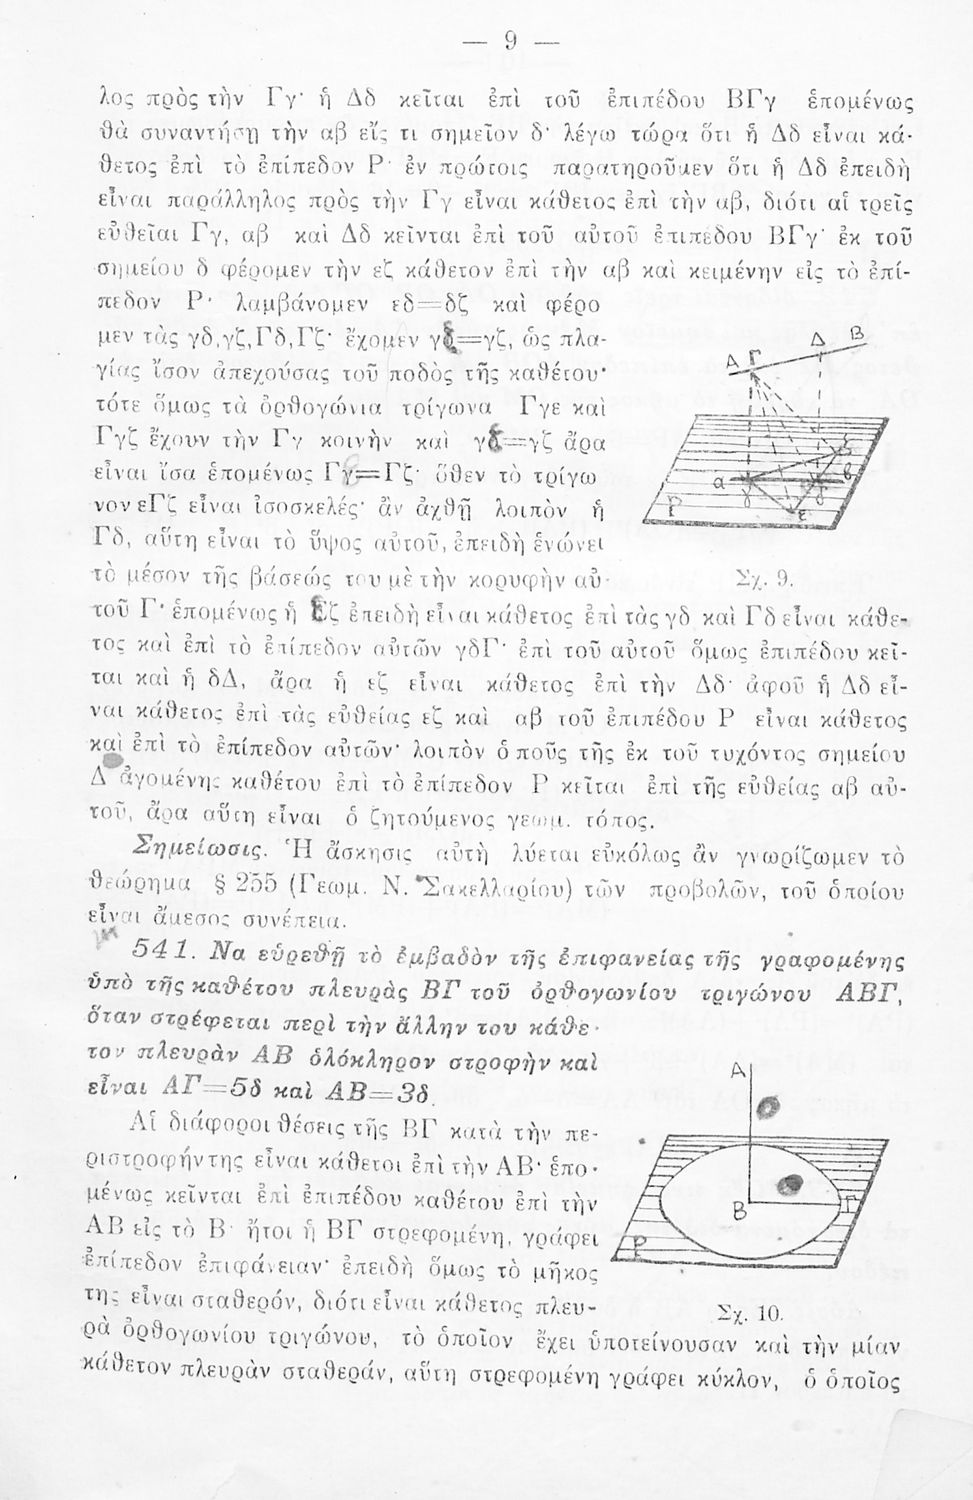 — 9 —
λος πρὸς τὴν Γγ· ἡ Δδ κεῖται ἐπὶ τοῦ ἐπιπέδου ΒΓγ ἑπομένως
θὰ συναντήσῃ τὴν αβ εἴς τι σημεῖον δ· λέγω τώρα ὅτι ἡ Δδ εἶναι κά-
θετος ἐπὶ τὸ ἐπίπεδον Ρ· ἐν πρώτοις παρατηροῦμεν ὅτι ἡ Δδ ἐπειδὴ
εἶναι παράλληλος πρὸς τὴν Γγ εἶναι κάθετος ἐπὶ τὴν αβ, διότι αἱ τρεῖς
εὐθεῖαι Γγ, αβ καὶ Δδ κεῖνται ἐπὶ τοῦ αὐτοῦ ἐπιπέδου ΒΓγ· ἐκ τοῦ
σημείου δ φέρομεν τὴν εζ κάθετον ἐπὶ τὴν αβ καὶ κειμένην εἰς τὸ ἐπί-
πεδον Ρ· λαμβάνομεν εδ=δζ καὶ φέρο
μεν τὰς γδ,γζ,Γδ,Γζ· ἔχομεν γε=γζ, ὡς πλα-
γίας ἴσον ἀπεχούσας τοῦ ποδὸς τῆς καθέτου·
τότε ὅμως τὰ ὀρθογώνια τρίγωνα Γγε καὶ
Γγζ ἔχουν τὴν Γγ κοινὴν καὶ γε=γζ ἄρα
εἶναι ἴσα ἑπομένως Γγ=Γζ· ὅθεν τὸ τρίγω
νον εΓζ εἶναι ἰσοσκελές· ἂν ἀχθῇ λοιπὸν ἡ
Γδ, αὕτη εἶναι τὸ ὕψος αὐτοῦ, ἐπειδὴ ἑνώνει
τὸ μέσον τῆς βάσεώς του μὲ τὴν κορυφὴν αὐ-
τοῦ Γ· ἑπομένως ἡ εζ ἐπειδὴ εἶναι κάθετος ἐπὶ τὰς γδ καὶ Γδ εἶναι κάθε-
τος καὶ ἐπὶ τὸ ἐπίπεδον αὐτῶν γδΓ· ἐπὶ τοῦ αὐτοῦ ὅμως ἐπιπέδου κεῖ-
ται καὶ ἡ δΔ, ἄρα ἡ εζ εἶναι κάθετος ἐπὶ τὴν Δδ· ἀφοῦ ἡ Δδ εἶ-
ναι κάθετος ἐπὶ τὰς εὐθείας εζ καὶ αβ τοῦ ἐπιπέδου Ρ εἶναι κάθετος
καὶ ἐπὶ τὸ ἐπίπεδον αὐτῶν· λοιπὸν ὁ ποῦς τῆς ἐκ τοῦ τυχόντος σημείου
Δ ἀγομένης καθέτου ἐπὶ τὸ ἐπίπεδον Ρ κεῖται ἐπὶ τῆς εὐθείας αβ αὐ-
τοῦ, ἄρα αὕτη εἶναι ὁ ζητούμενος γεωμ. τόπος.
Σημείωσις. Ἡ ἄσκησις αὐτὴ λύεται εὐκόλως ἂν γνωρίζωμεν τὸ
θεώρημα § 255 (Γεωμ. Ν. Σακελλαρίου) τῶν προβολῶν, τοῦ ὁποίου
εἶναι ἄμεσος συνέπεια.
541. Να εὑρεθῇ τὸ ἐμβαδὸν τῆς ἐπιφανείας τῆς γραφομένης
ὑπὸ τῆς καθέτου πλευρᾶς ΒΓ τοῦ ὀρθογωνίου τριγώνου ΑΒΓ,
ὅταν στρέφεται περὶ τὴν ἄλλην του κάθε-
τον πλευρὰν ΑΒ ὁλόκληρον στροφὴν καὶ
εἶναι ΑΓ=5δ καὶ ΑΒ=3δ.
Αἱ διάφοροι θέσεις τῆς ΒΓ κατὰ τὴν πε-
ριστροφήν της εἶναι κάθετοι ἐπὶ τὴν ΑΒ· ἑπο-
μένως κεῖνται ἐπὶ ἐπιπέδου καθέτου ἐπὶ τὴν
ΑΒ εἰς τὸ Β· ἤτοι ἡ ΒΓ στρεφομένη, γράφει
ἐπίπεδον ἐπιφάνειαν· ἐπειδὴ ὅμως τὸ μῆκος
της εἶναι σταθερόν, διότι εἶναι κάθετος πλευ-
ρὰ ὀρθογωνίου τριγώνου, τὸ ὁποῖον ἔχει ὑποτείνουσαν καὶ τὴν μίαν
κάθετον πλευρὰν σταθεράν, αὕτη στρεφομένη γράφει κύκλον, ὁ ὁποῖος
Α Γ Δ Β
α γ δ β ζ ε
Ρ
Σχ. 9.
Α
Β Γ
Ρ
Σχ. 10.